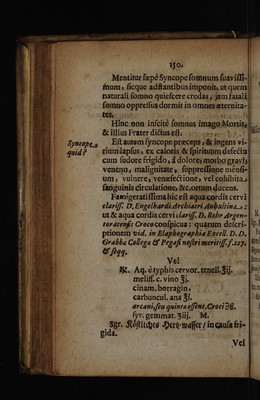 150.
Mentitur sæpè Syncope somnum suavissi-
mum, sicque adstantibus imponit, ut quem
naturali somno quiescere credas, jam fatali
somno oppressus dormit in omnes æternita-
tes.
Hinc non inscitè somnus imago Mortis,
& illius Frater dictus est.
Syncope
quid?
Est autem syncope præceps, & ingens vi-
rium lapsus, ex caloris & spirituum defectu
cum sudore frigido, à dolore, morbo gravi,
veneno, malignitate, suppressione mensi-
um, vulnere, venæsectione, vel cohibita
sanguinis circulatione, &c. ortum ducens.
Famigeratissima hîc est aqua cordis cervi
clariss. D. Engelhardi Archiatri Anhaltina.:
ut & aqua cordis cervi clariss. D. Behr Argen-
toratensis Croco conspicua: quarum descri-
ptionem vid. in Elaphographia Excell. D. D.
Grabba Collegæ & Pegasi nostri meritiss. f. 227.
& seqq.
Vel
℞. Aq. è typhis cervor. tenell. ℥ij.
meliss. c. vino ℥j.
cinam. borragin.
carbuncul. ana ℥ß.
arcani, seu quintæ essent. Croci ℈ß.
syr. gemmat. ℥iij. M.
Sgr. Köstliches Hertz-wasser / in causa fri-
gida.
Vel